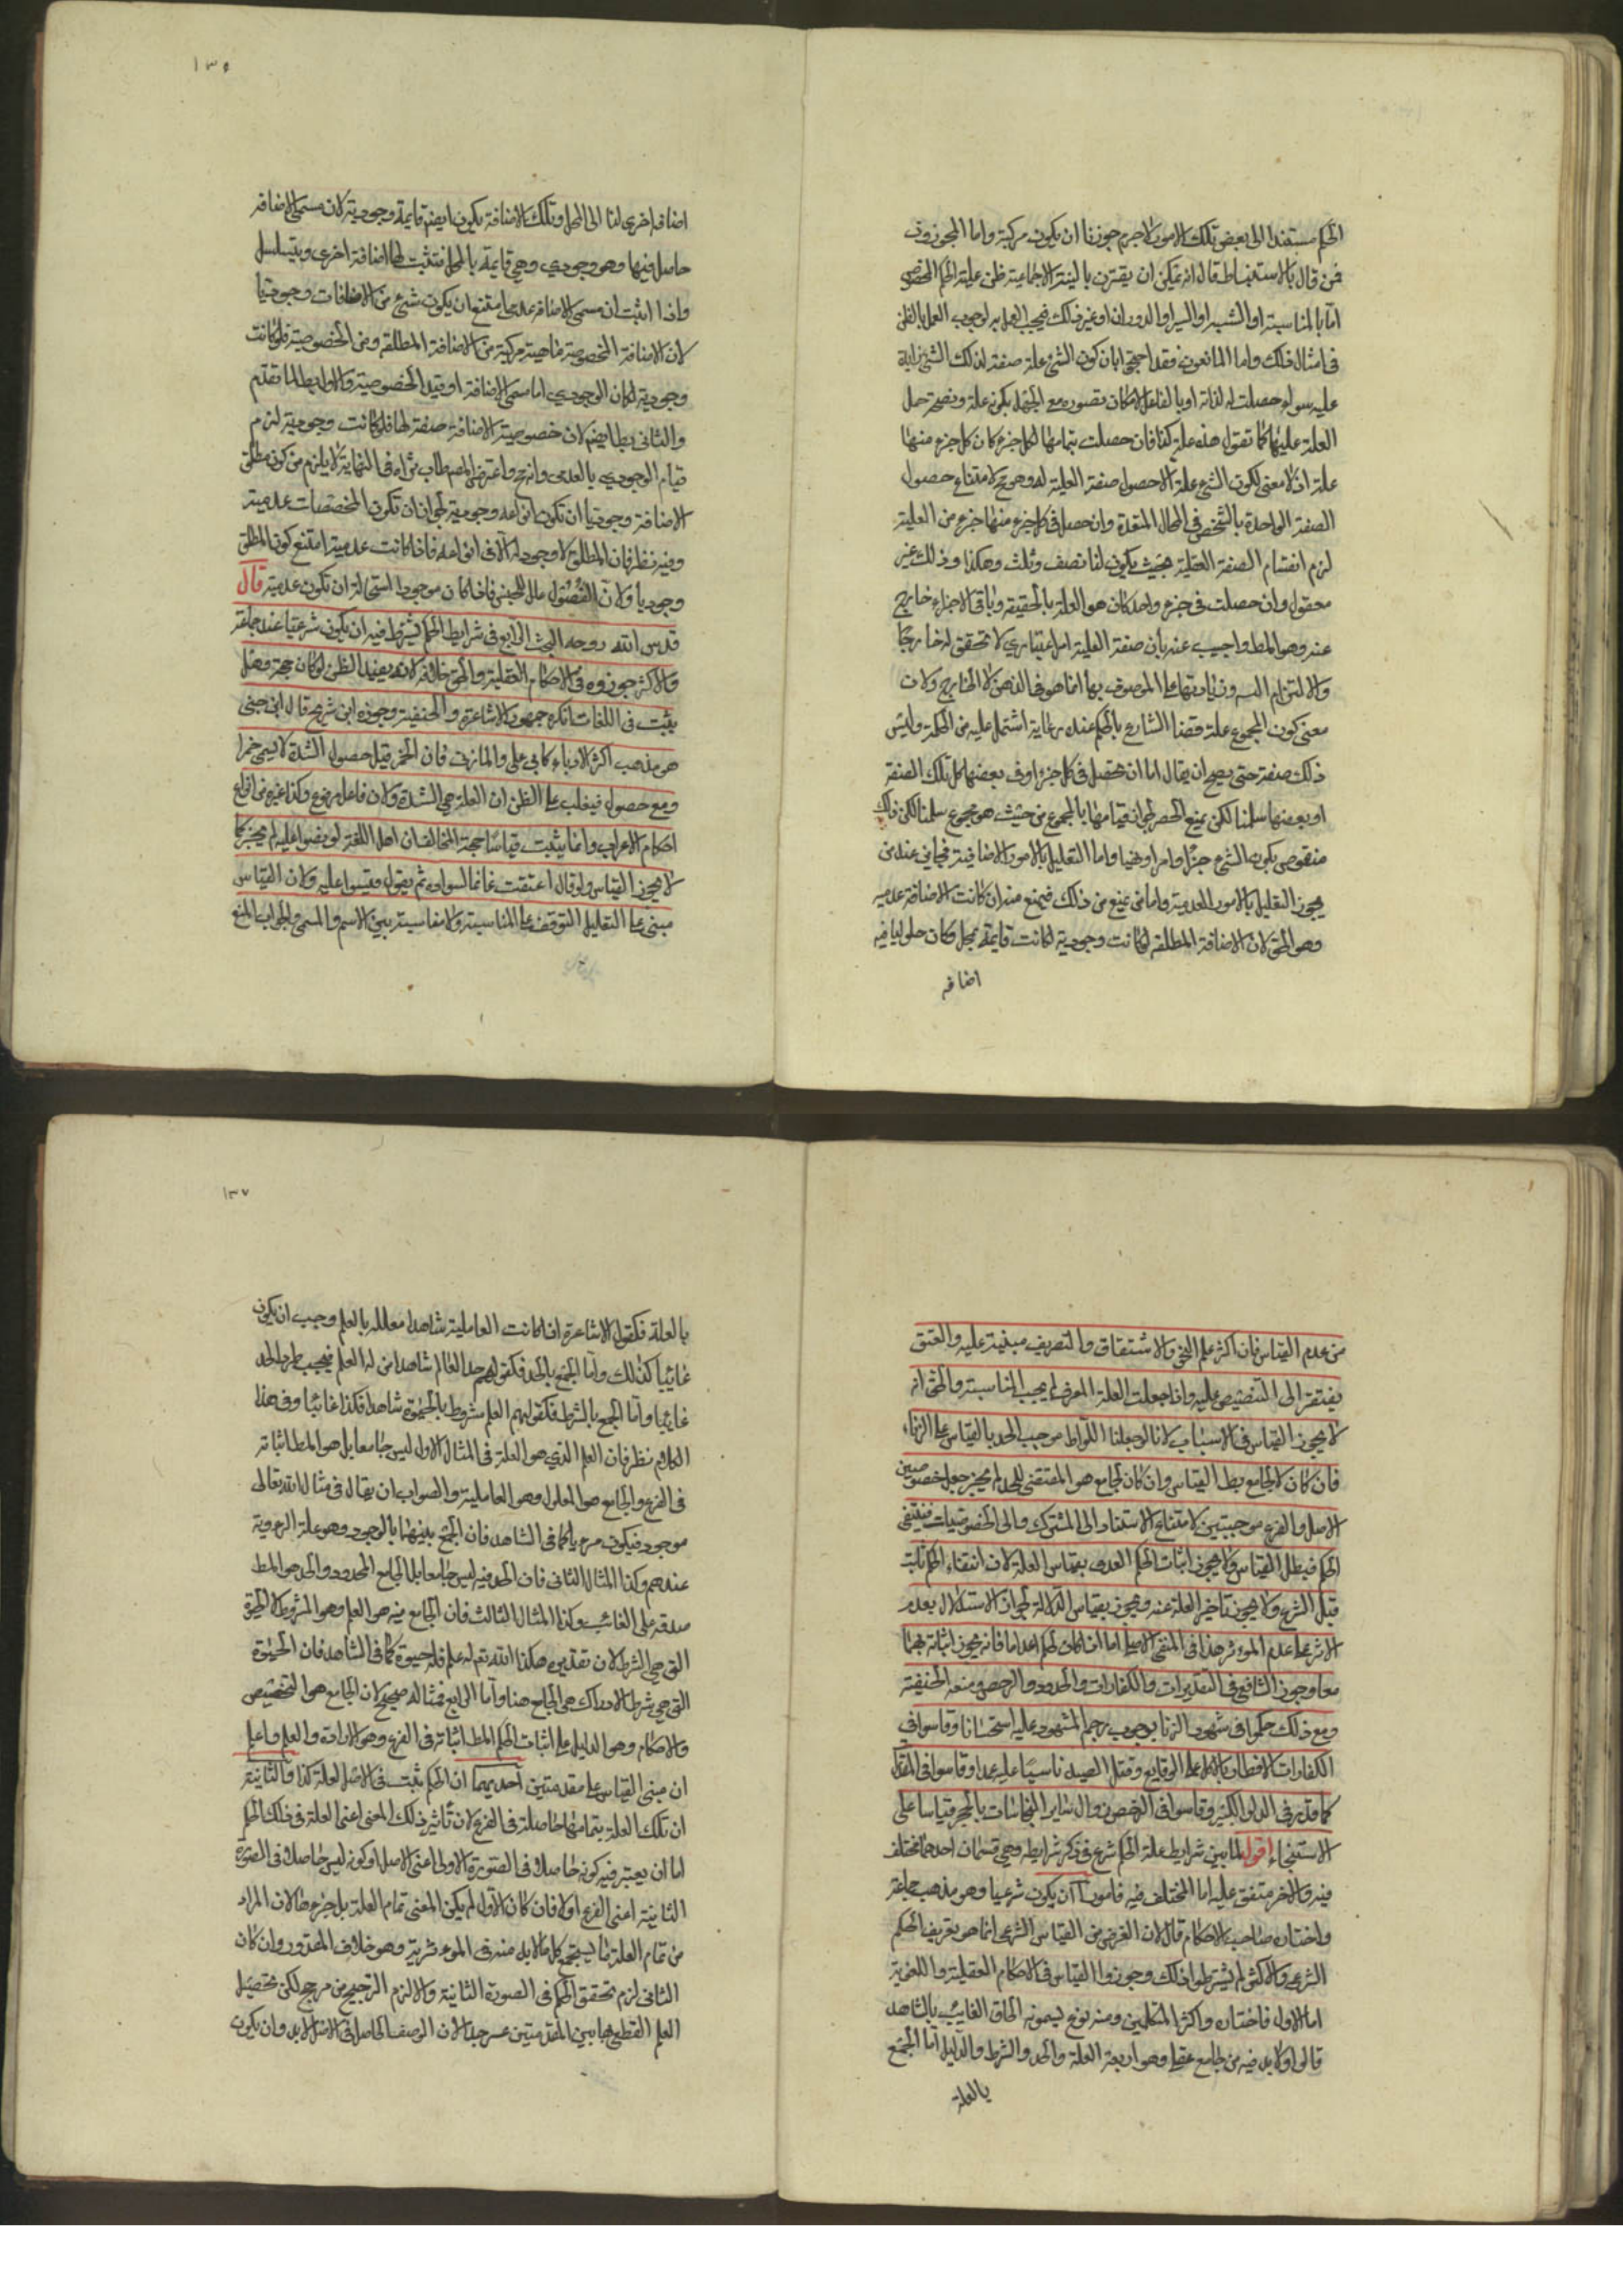 الحكم مستندا الى بعض تلك الامور لاجرم جوزنا ان يكون مركبة واما المجوزون
فمن قال بالاستنباط قال انه يمكن ان يقترن بالهيئة الاجتماعية ظن علية الحكم المخصوص
اما بالمناسبة او الشبه او السبر او الدوران او غير ذلك فيجب العمل به لوجوب العمل بالظن
في امثال ذلك واما المانعون فقد احتجوا بان كون الشئ علة صفة لذلك الشئ زايدة
عليه سواء حصلت له لذاته او بالفاعل لامكان تصوره مع الجهل بكونه علة وبصحة حمل
العلة عليها كما تقول هذه علة كذا فان حصلت بتمامها لكل جزء كان كل جزء منها
علة اذ لا معنى لكون الشئ علة الا حصول صفة العلية له وهو مح لامتناع حصول
الصفة الواحدة بالشخص في المحال المتعددة وان حصل في كل جزء منها جزء من العلية
لزم انقسام الصفة العقلية بحيث يكون لنا نصف وثلث وهكذا وذلك غير
معقول وان حصلت في جزء واحد كان هو العلة بالحقيقة وباقي الاجزاء خارج
عنه وهو المط واجيب عنه بان صفة العلية امر اعتباري لا تحقق له خارجا
والا لتزم التسلسل وزيادتها على الموصوف بها انما هو في الذهن لا الخارج ولان
معنى كون المجموع علة قضا الشارع بالحكم عنده رعاية لما اشتمل عليه من الحكمة وليس
ذلك صفة حتى يصح ان يقال اما ان تحصل في كل جزء او في بعضها كل تلك الصفة
او بعضها سلمنا لكن يمنع الحصر لجواز قيامها بالمجموع من حيث هو مجموع سلمنا لكن ذلك
منقوض بكون الشئ خبرا وامرا ونهيا واما التعليل بالامور الاضافية فجايز عند من
يجوز التعليل بالامور العدمية واما من يمنع من ذلك فيمنع منه ان كانت الاضافة عدمية
وهو الحق لان الاضافة المطلقة لو كانت وجودية لكانت قايمة بمحل وكان حلولها فيه
اضافه
١٣٥
اضافة اخرى لنا الى المحل وتلك الاضافة يكون ايضا قايمة وجودية لان مسمى الاضافة
حاصل فيها وهو وجودي وهي قايمة بالمحل فتثبت لها اضافة اخرى ويتسلسل
واذا ثبت ان مسمى الاضافة عدمي امتنع ان يكون شئ من الاضافات وجوديا
لان الاضافة المخصوصة ماهية مركبة من الاضافة المطلقة ومن الخصوصية فلو كانت
وجودية لكان الوجودي اما مسمى الاضافة او قيد الخصوصية والاول بط لما تقدم
والثاني بط ايضا لان خصوصية الاضافة صفة لها فلو كانت وجودية لزم
قيام الوجودي بالعدمي وانه مح واعترض المص طاب ثراه في النهاية بانه لا يلزم من كون مطلق
الاضافة وجوديا ان تكون انواعه وجودية لجواز ان تكون المخصصات عدمية
وفيه نظر فان المطلق لا وجود له الا في انواعه فاذا كانت عدمية امتنع كون المطلق
وجوديا ولان الفصول علل للجنس فاذا كان موجودا استحالة ان تكون عدمية قال
قدس الله روحه البحث الرابع في شرايط الحكم يشترط فيه ان يكون شرعيا عند جماعة
والاكثر جوزوه في الاحكام العقلية والحق خلافه لانه يفيد الظن لو كان حجة وهل
يثبت في اللغات انكره جمهور الاشاعرة والحنفية وجوزه ابن شريح قال ابن جني
هو مذهب اكثر الادباء كابي علي والمازني فان الخمر قبل حصول الشدة لا يسمى خمرا
ومع حصولها فيغلب على الظن ان العلة هي الشدة ولان فاعل مرفوع وكذا غيره من انواع
احكام الاعراب وانما يثبت قياسا حجة المخالف ان اهل اللغة لو نصوا عليه لم يجز كما
لا يجوز القياس لو قال اعتقت غانما لسواده ثم يقول فقيسوا عليه ولان القياس
مبني على التعليل المتوقف على المناسبة ولا مناسبة بين الاسم والمسمى والجواب المنع
من عدم القياس فان اكثر علم النحو والاشتقاق والتصريف مبنية عليه والعتق
يفتقر الى التنصيص عليه واذا جعلت العلة المعرف لم يجب المناسبة والحق انه
لا يجوز القياس في الاسباب لانا لو جعلنا اللواط موجب الحد بالقياس على الزناء
فان كان لا لجامع بطل القياس وان كان لجامع هو المقتضي للحد لم يجز جعل خصوصيتي
الاصل والفرع موجبتين لامتناع الاستناد الى المشترك والى الخصوصيات فينتفي
الحكم فبطل القياس ولا يجوز اثبات الحكم العدمي بقياس العلة لان انتفاء الحكم ثابت
قبل الشرع ولا يجوز تاخير العلة عنه ويجوز بقياس الدلالة لجواز الاستدلال بعدم
الاثر على عدم المؤثر هذا في النفي الاصلي اما اذا كان الحكم اعداما فانه يجوز اثباته بهما
معا وجوز الشافعي في التقديرات والكفارات والحدود والرخص ومنعه الحنفية
ومع ذلك حكموا في شهود الزنا بوجوب رجم المشهود عليه استحسانا وقاسوا في
الكفارات الافطار بالاكل على الوقاع وقتل الصيد ناسيا عليه عمدا وقاسوا في المقدرات
كما قدر في الدلو والبئر وقاسوا في الرخص زوال ساير النجاسات بالحجر قياسا على
الاستنجاء اقول لما بين شرايط علة الحكم شرع في ذكر شرايطه وهي قسمان احدهما مختلف
فيه والاخر متفق عليه اما المختلف فيه فامور آ ان يكون شرعيا وهو مذهب جماعة
واختاره صاحب الاحكام قال لان الغرض من القياس الشرعي انما هو تعريف الحكم
الشرعي والاكثر لم يشترطوا ذلك وجوزوا القياس في الاحكام العقلية واللغوية
اما الاول فاختاره واكثر المتكلمين ومنه نوع يسمونه الحاق الغايب بالشاهد
قالوا ولابد فيه من جامع عقلي وهو اربعة العلة والحد والشرط والدليل اما الجمع
بالعلة
١٣٧
بالعلة فكقول الاشاعرة اذا كانت العاملية شاهدا معللة بالعلم وجب ان يكون
غايبا كذلك واما الجمع بالحد فكقولهم حد العالم شاهدا من له العلم فيجب طرد الحد
غايبا واما الجمع بالشرط فكقولهم العلم مشروط بالحيوة شاهدا فكذا غايبا وفي هذا
الكلام نظر فان العلم الذي هو العلة في المثال الاول ليس جامعا بل هو المط اثباته
في الفرع والجامع هو المعلول وهو العاملية والصواب ان يقال في مثاله الله تعالى
موجود فيكون مرييا كما في الشاهد فان الجمع بينهما بالوجود وهو علة الروية
عندهم وكذا المثال الثاني فان الحد فيه ليس جامعا بل الجامع المحدود والحد هو المط
صدقه على الغائب وكذا المثال الثالث فان الجامع فيه هو العلم وهو المشروط لا الحيوة
التي هي الشرط لان تقديره هكذا الله تعم له علم فله حيوة كما في الشاهد فان الحيوة
التي هي شرط الادراك هي الجامع هنا واما الرابع فمثاله صحيح لان الجامع هو التخصيص
والاحكام وهو الدليل على اثبات الحكم المط اثباته في الفرع وهو الارادة والعلم واعلم
ان مبنى القياس على مقدمتين احديهما ان الحكم ثبت في الاصل لعلة كذا والثانية
ان تلك العلة بتمامها حاصلة في الفرع لان تأثير ذلك المعنى اعني العلة في ذلك الحكم
اما ان يعتبر فيه كونه حاصلا في الصورة الاولى اعني الاصل او كونه ليس حاصلا في الصورة
الثانية اعني الفرع اولا فان كان الاول لم يكن المعنى تمام العلة بل جزءها لان المراد
من تمام العلة ما يستجمع كل ما لابد منه في الموءثرية وهو خلاف المقدور وان كان
الثاني لزم تحقق الحكم في الصورة الثانية والا لزم الترجيح من مرجح لكن تحصيل
العلم القطعي بهاتين المقدمتين عسر جدا لان الوصف الحاصل في الاصل لابد وان يكون